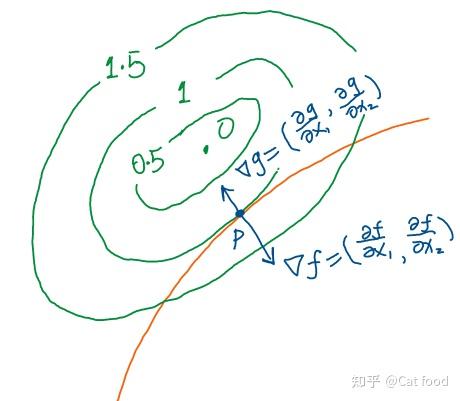 1.5
1
0
0.5
∇g=(∂g/∂x₁, ∂g/∂x₂)
P
∇f=(∂f/∂x₁, ∂f/∂x₂)
知乎 @Cat food